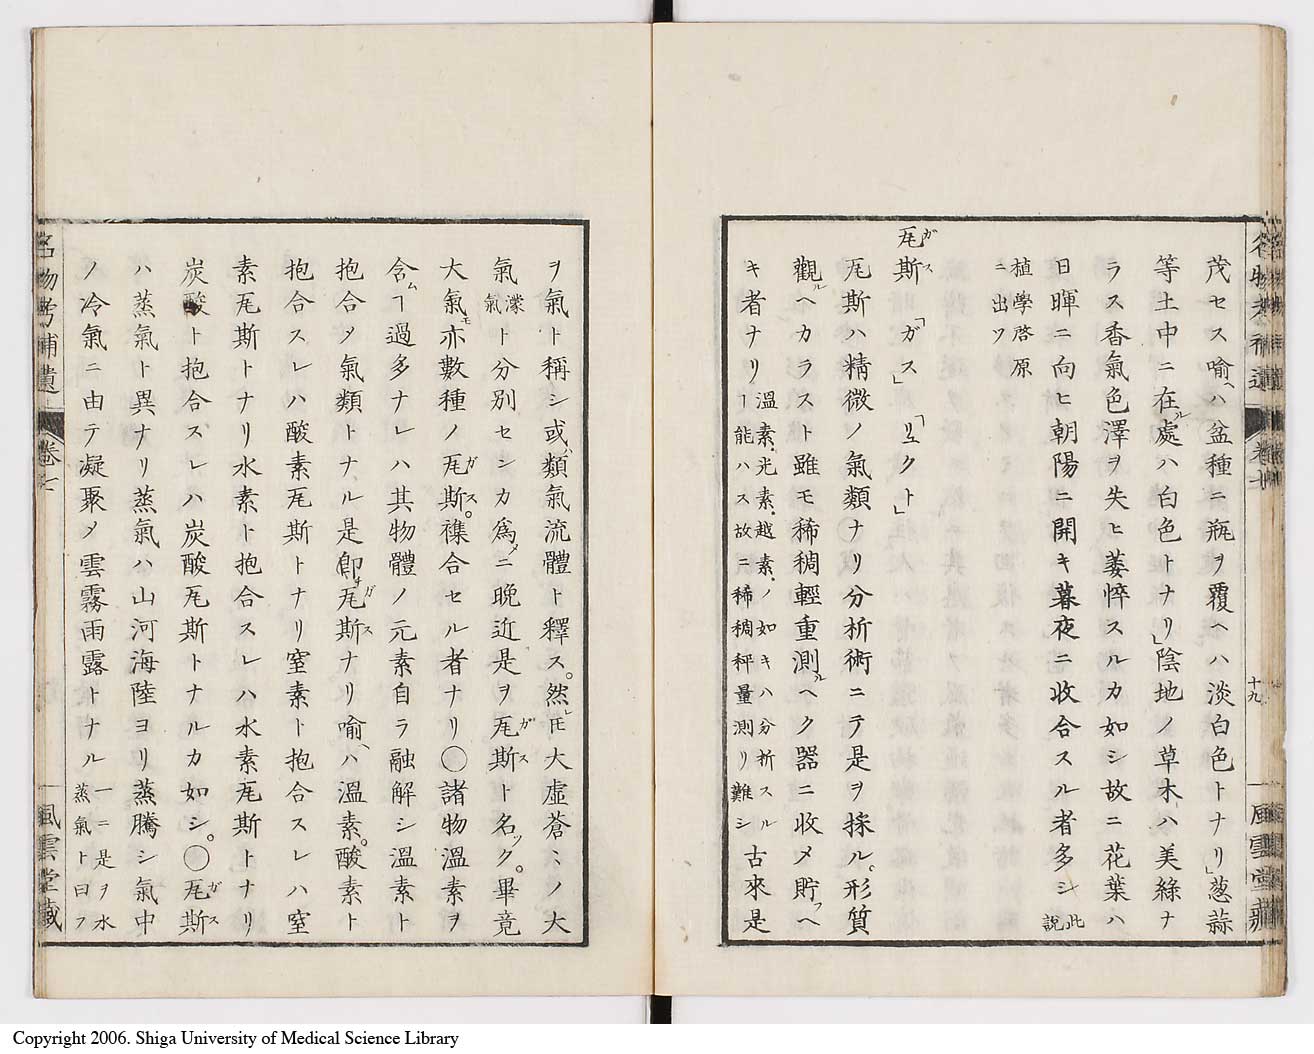 茂セス喩ヘハ盆種ニ瓶ヲ覆ヘハ淡白色トナリ」葱蒜
等土中ニ在ル處ハ白色トナリ」陰地ノ草木ハ美綠ナ
ラス香氣色澤ヲ失ヒ萎悴スルカ如シ故ニ花葉ハ
日暉ニ向ヒ朝陽ニ開キ暮夜ニ收合スル者多シ此説
植學啓原
ニ出ツ
瓦斯ガス 「ガス」 「リュクト」
瓦斯ハ精微ノ氣類ナリ分析術ニテ是ヲ採ル。形質
觀ルヘカラスト雖モ稀稠輕重測ルヘク器ニ收メ貯フヘ
キ者ナリ 溫素。光素。越素。ノ如キハ分析スル
ヿ能ハス故ニ稀稠秤量測リ難シ 古來是
ヲ氣ト稱シ或ハ類氣流體ト釋ス。然レ𪜈大虛蒼々ノ大
氣濛氣ト分別センカ爲メニ晩近是ヲ瓦斯ガスト名ツク。畢竟
大氣モ亦數種ノ瓦斯ガス。襍合セル者ナリ〇諸物溫素ヲ
含ムヿ過多ナレハ其物體ノ元素自ラ融解シ溫素ト
抱合メ氣類トナル是卽チ瓦斯ガスナリ喩ヘハ溫素。酸素ト
抱合スレハ酸素瓦斯トナリ窒素ト抱合スレハ窒
素瓦斯トナリ水素ト抱合スレハ水素瓦斯トナリ
炭酸ト抱合スレハ炭酸瓦斯トナルカ如シ。〇瓦斯ガス
ハ蒸氣ト異ナリ蒸氣ハ山河海陸ヨリ蒸騰シ氣中
ノ冷氣ニ由テ凝聚メ雲霧雨露トナル 一ニ是ヲ水
蒸氣ト曰フ
名物考補遺
卷七
十九
風雲堂藏
Copyright 2006. Shiga University of Medical Science Library